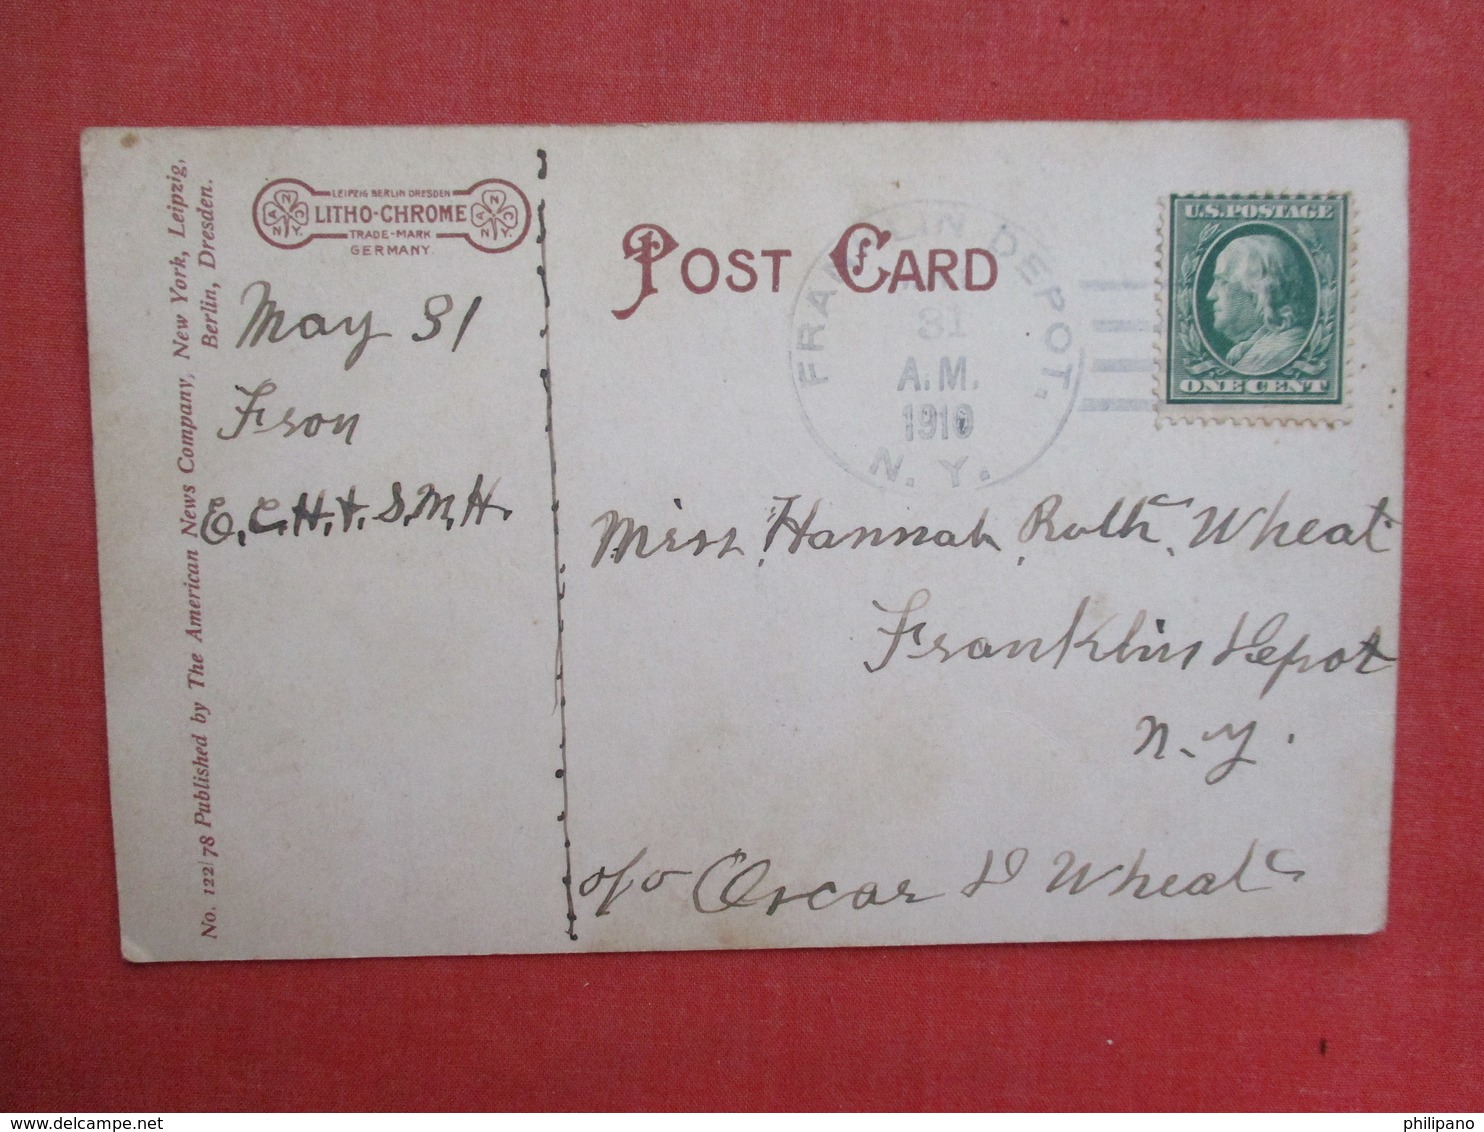 No. 122/78 Published by The American News Company, New York, Leipzig,
Berlin, Dresden.
LEIPZIG BERLIN DRESDEN
LITHO-CHROME
TRADE-MARK
GERMANY.
A N C N.Y.
A N C N.Y.
May 31
From
E.C.H. & S.M.H.
POST CARD
FRANKLIN DEPOT.
31
A.M.
1910
N.Y.
U.S. POSTAGE
ONE CENT
Miss Hannah Ruth Wheat
Franklin Depot
N.Y.
c/o Oscar D Wheat
philipano